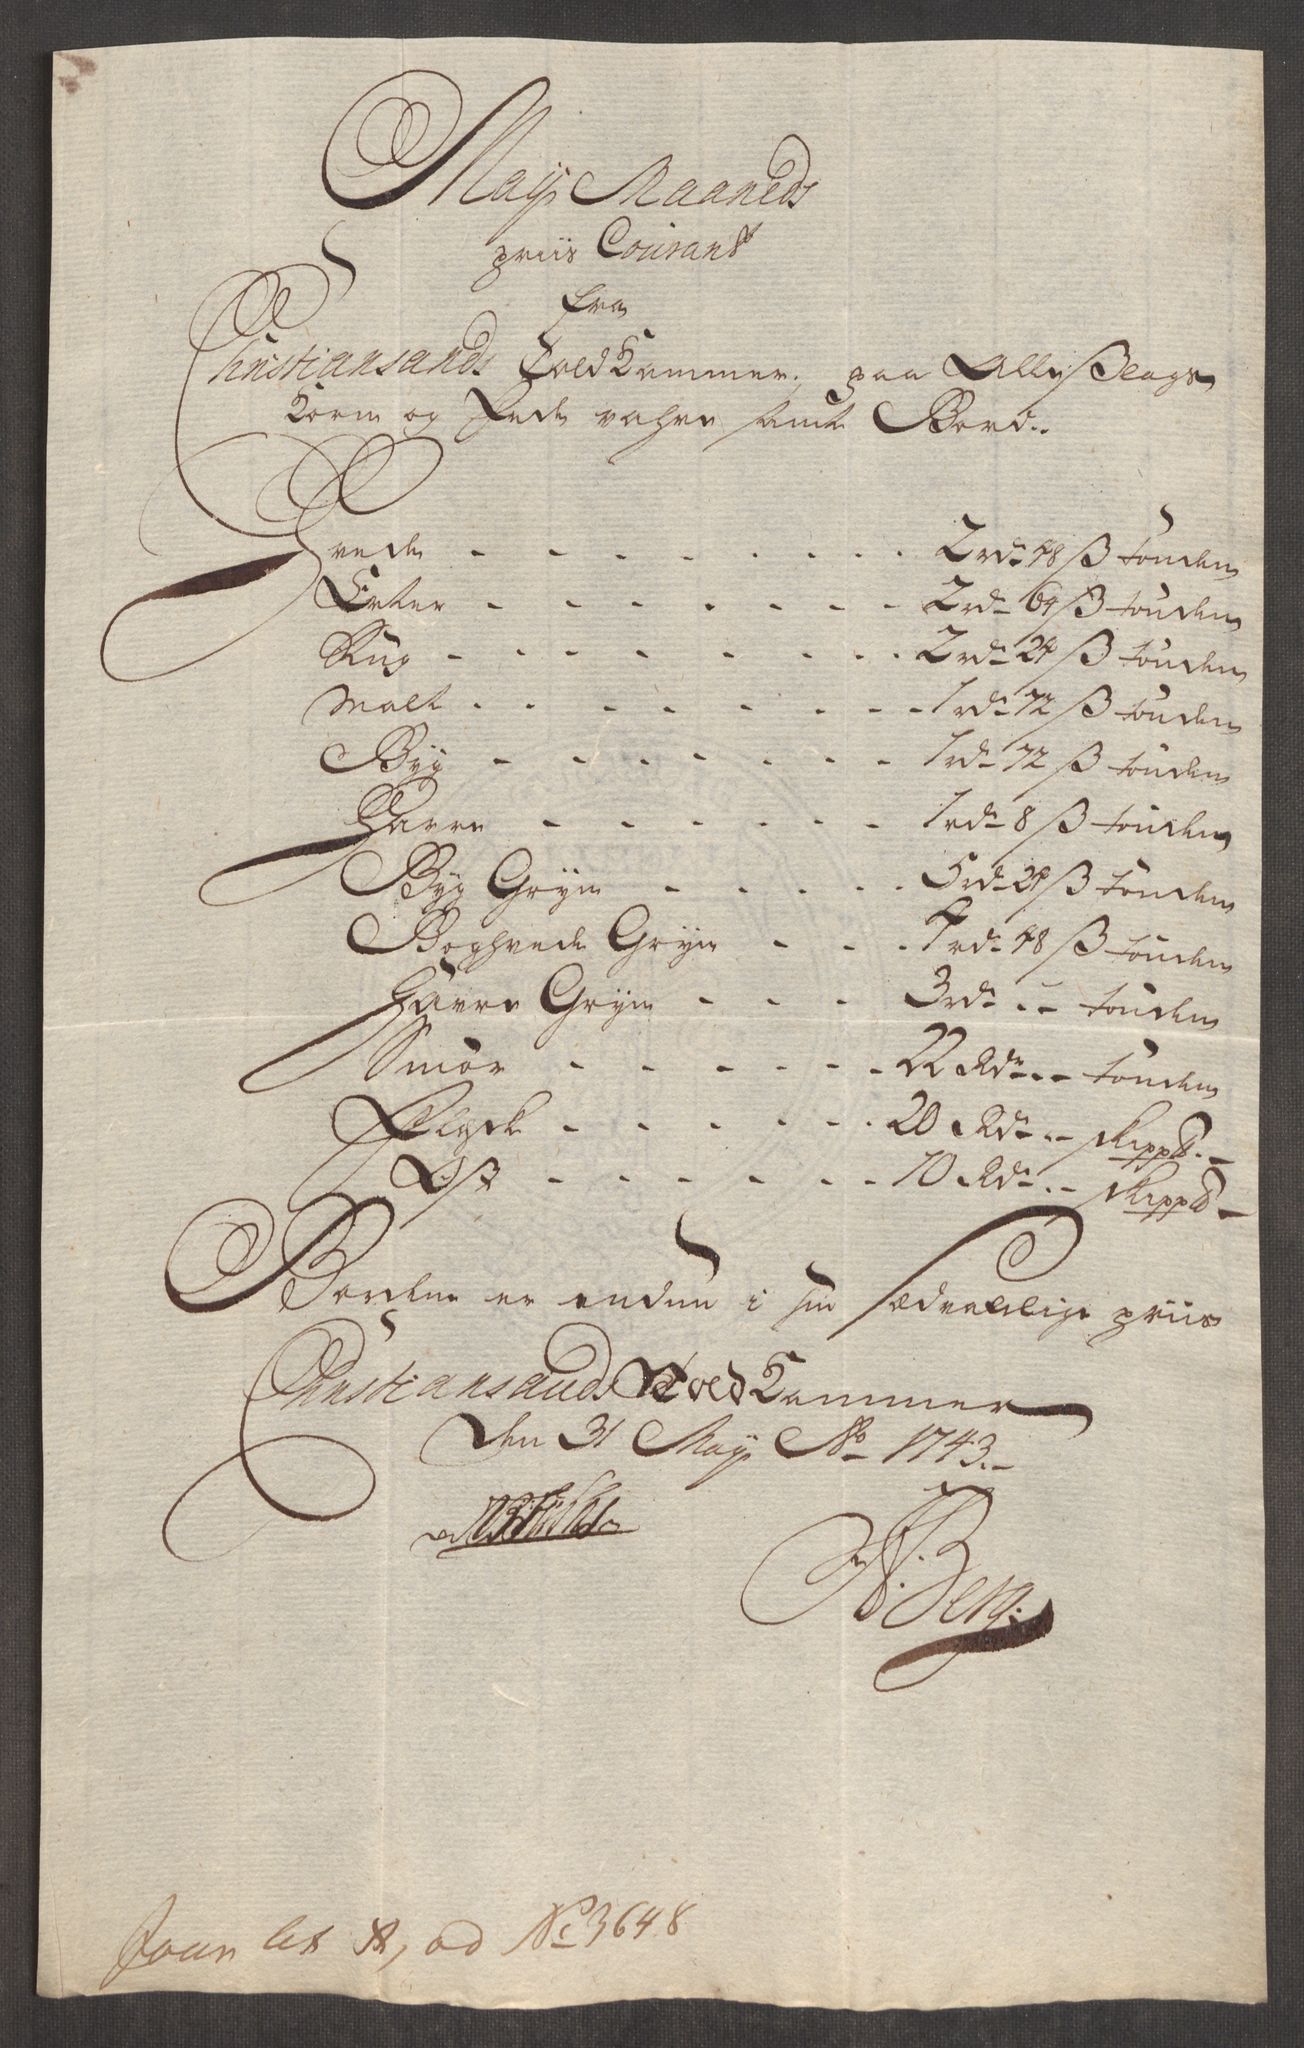 Maji Maaneds
priis Courant
fra
Christiansands Told Kammer, paa Alle Slags
Korn og Fede vahre samt Bord..
Hvede - - - - - - - - 2 rd 48 ß tønden
Erter - - - - - - - 2 rd 64 ß tønden
Rug - - - - - - - - 2 rd 24 ß tønden
Malt - - - - - - - - 1 rd 72 ß tønden
Byg - - - - - - - 1 rd 72 ß tønden
Havre - - - - - - 1 rd 8 ß tønden
Byg Gryn - - - - - 5 rd 24 ß tønden
Boghvede Gryn - - - rd 48 ß tønden
Havre Gryn - - - 3 rd .. - tønden
Smør - - - - - - 22 Rd .. - tønden
Flesk - - - - - - 20 Rd .. - skipp℔. -
Ost - - - - - - 10 Rd .. - skipp℔ -
Bordene er endnu i sin sædvahlige priis
Christiansands Told Kammer
den 31 Maji Ao 1743. -
Berg.
No 3648